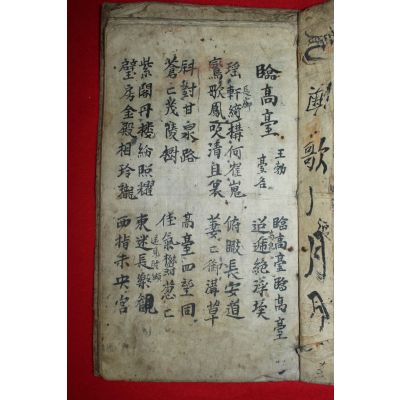 臨高臺
王勃
臺名
臨高臺臨高臺
迢遞絶浮埃
瑤軒綺構何崔嵬
鸞歌鳳吹清且哀
俯瞰長安道
萋〻御溝草
斜對甘泉路
蒼〻茂陵樹
高臺四望同
佳氣鬱葱〻
紫閣丹樓紛照耀
璧房金殿相玲瓏
東迷長樂觀
西指未央宮
歌八月